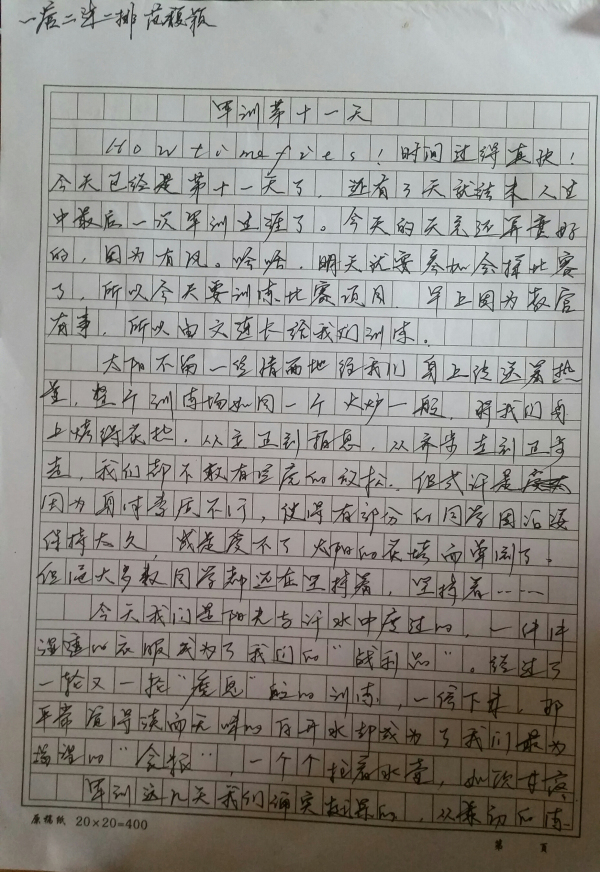 一营二连二排 范馥瓶
军训第十一天
How time fies! 时间过得真快!
今天已经是第十一天了,还有3天就结束人生
中最后一次军训生涯了。今天的天气还算蛮好
的,因为有风。哈哈,明天就要参加会操比赛
了,所以今天要训练比赛项目,早上因为教官
有事,所以由文连长给我们训练。
太阳不留一丝情面地给我们身上传送着热
量,整个训练场如同一个火炉一般,将我们身
上烤得灼热,从立正到稍息,从齐步走到正步
走,我们都不敢有一丝的放松。但或许是
因为身体素质不行,使得有部分的同学因
保持太久,或是受不了太阳的灼烤而晕倒了。
但绝大多数同学都还在坚持着,坚持着……
今天我们是阳光与汗水中度过的,一件件
湿哒的衣服成为了我们的“战利品”。经过了
一轮又一轮“ ”的训练,一停下来,那
平常觉得淡而无味的白开水却成为了我们最为
的“食粮”,一个个抱着水壶,如饮甘露
军训这几天我们确实挺累的,从最初的
原稿纸 20×20=400
第 页